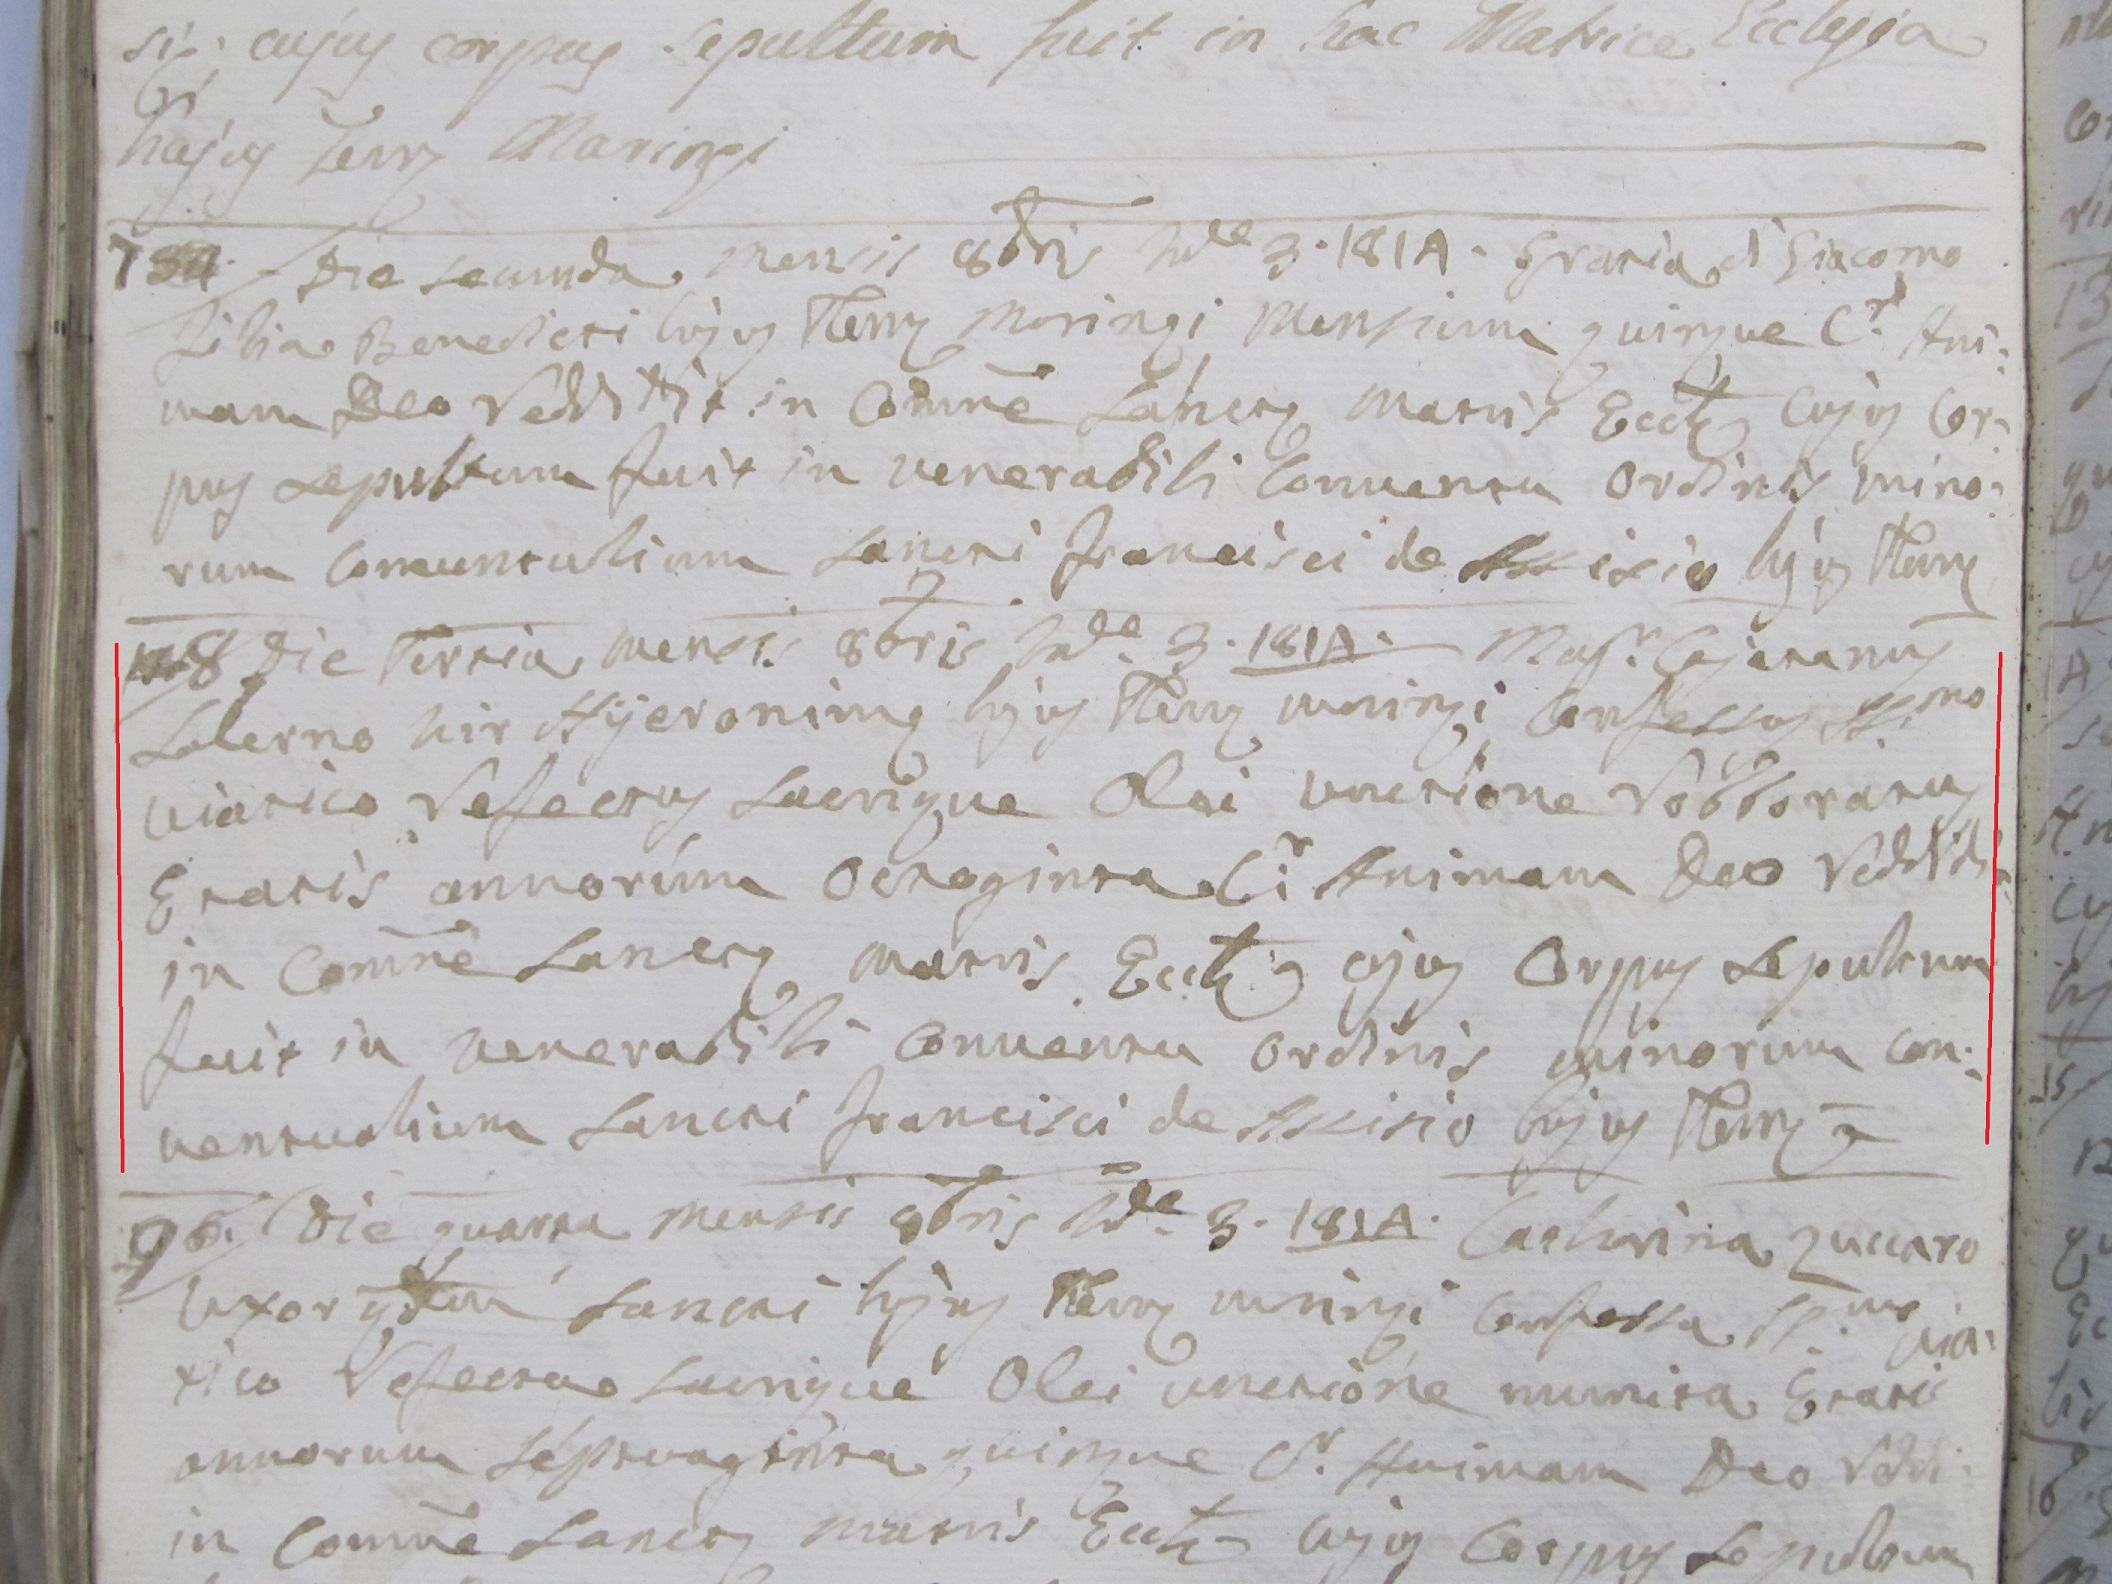 sis, cujus corpus sepultum fuit in hac Matrice Ecclesia
hujus Terrę Maringi
Die secunda mensis 8bris Inde 3. 1814. Gratia di Giacomo
Filia Benedicti hujus Terrę Moringi Mensium quinque Cr. Ani-
mam Deo reddidit in Comne Sanctę Matris Eccłę cujus Cor-
pus sepultum fuit in venerabili Conventu Ordinis mino-
rum Conventualium Sancti Francisci de Assisio hujus Terrę
Die Tertia mensis 8bris Inde 3. 1814. Magr. Cajetanus
Salerno vir Hijeronimę hujus Terrę moringi Confessus SSmo
viatico refectus Sacrique Olei unctione roboratus
Etatis annorum Octoginta Cr. Animam Deo reddidit
in Comne Sanctę matris Eccłę cujus Corpus Sepultum
fuit in venerabili Conventu Ordinis minorum Con-
ventualium Sancti Francisci de Assisio hujus Terrę
Die quarta mensis 8bris Inde 3. 1814. Catharina Zuccaro
Uxor qdam Sancti hujus Terrę moringi Confessa SSmo via-
tico refecta Sacrique Olei unctione munita Etatis
annorum Septuaginta quinque Cr. Animam Deo reddi
in Comne Sanctę matris Eccłę cujus Corpus Sepultum